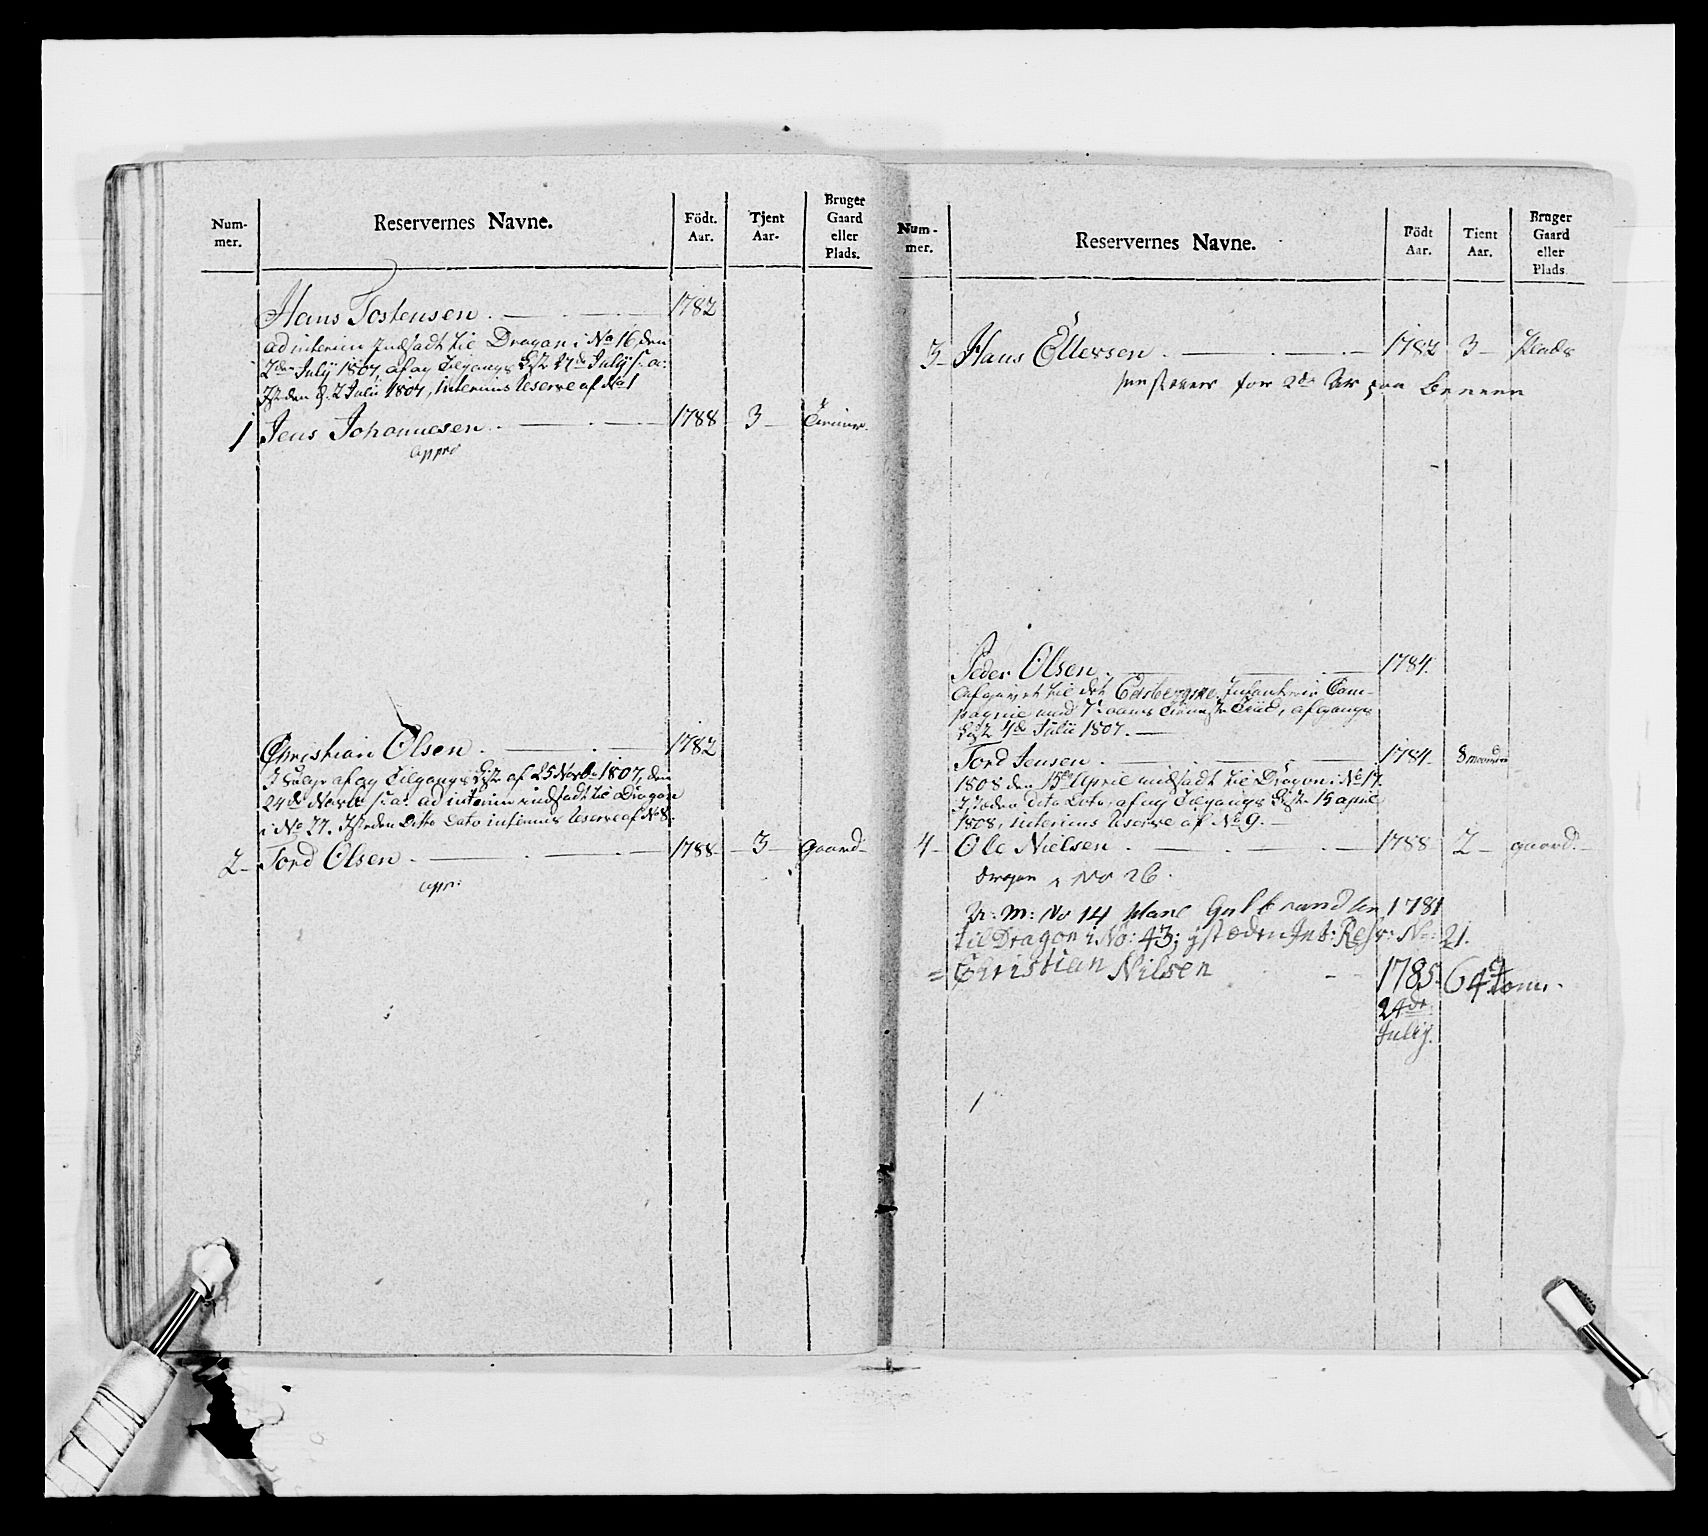 Num-
mer.
Reservernes Navne.
Födt.
Aar.
Tjent
Aar.
Bruger
Gaard
eller
Plads.
Hans Tostensen 1782
ad interim indsadt til Dragon i No 16, den
2den Julij 1807, af og Tilgangs Liste 17de Julij s: a:
Isteden d. 2 Julii 1807, interims reserve af No 1
1 Jens Johannesen 1788 3
Appro
Christian Olsen 1782
I Følge af og Tilgangs Liste af 25 Novbr 1807, den
24de Novbr s: a: ad interim indsadt til Dragon
i No 27. Isteden Ditto Dato interims reserve af No 8.
2 Tord Olsen 1788 3 Gaard
appr:
Num-
mer.
Reservernes Navne.
Födt
Aar.
Tient
Aar.
Bruger
Gaard
eller
Plads.
3 Hans Ellersen 1782 3 Plads
for 2de Ar paa Benene
Peder Olsen 1784
Afgivet til det Infanterie Com-
pagnie med afgangs
Liste 4de Julii 1807.
Tord Jensen 1784 8
1808 den 15de April indsadt til Dragon i No 17.
Isteden dito Dato, af og Tilgangs Liste 15 april
1808, interims reserve af No 9.
4 Ole Nielsen 1788 2 gaard
Dragon i No 26.
N: M: No 14 Hans Gulbrandsen 1781
til Dragon i No: 43; isteden Int: Resr: No: 21.
= Christian Nilsen 1785 64
24de
Julij.